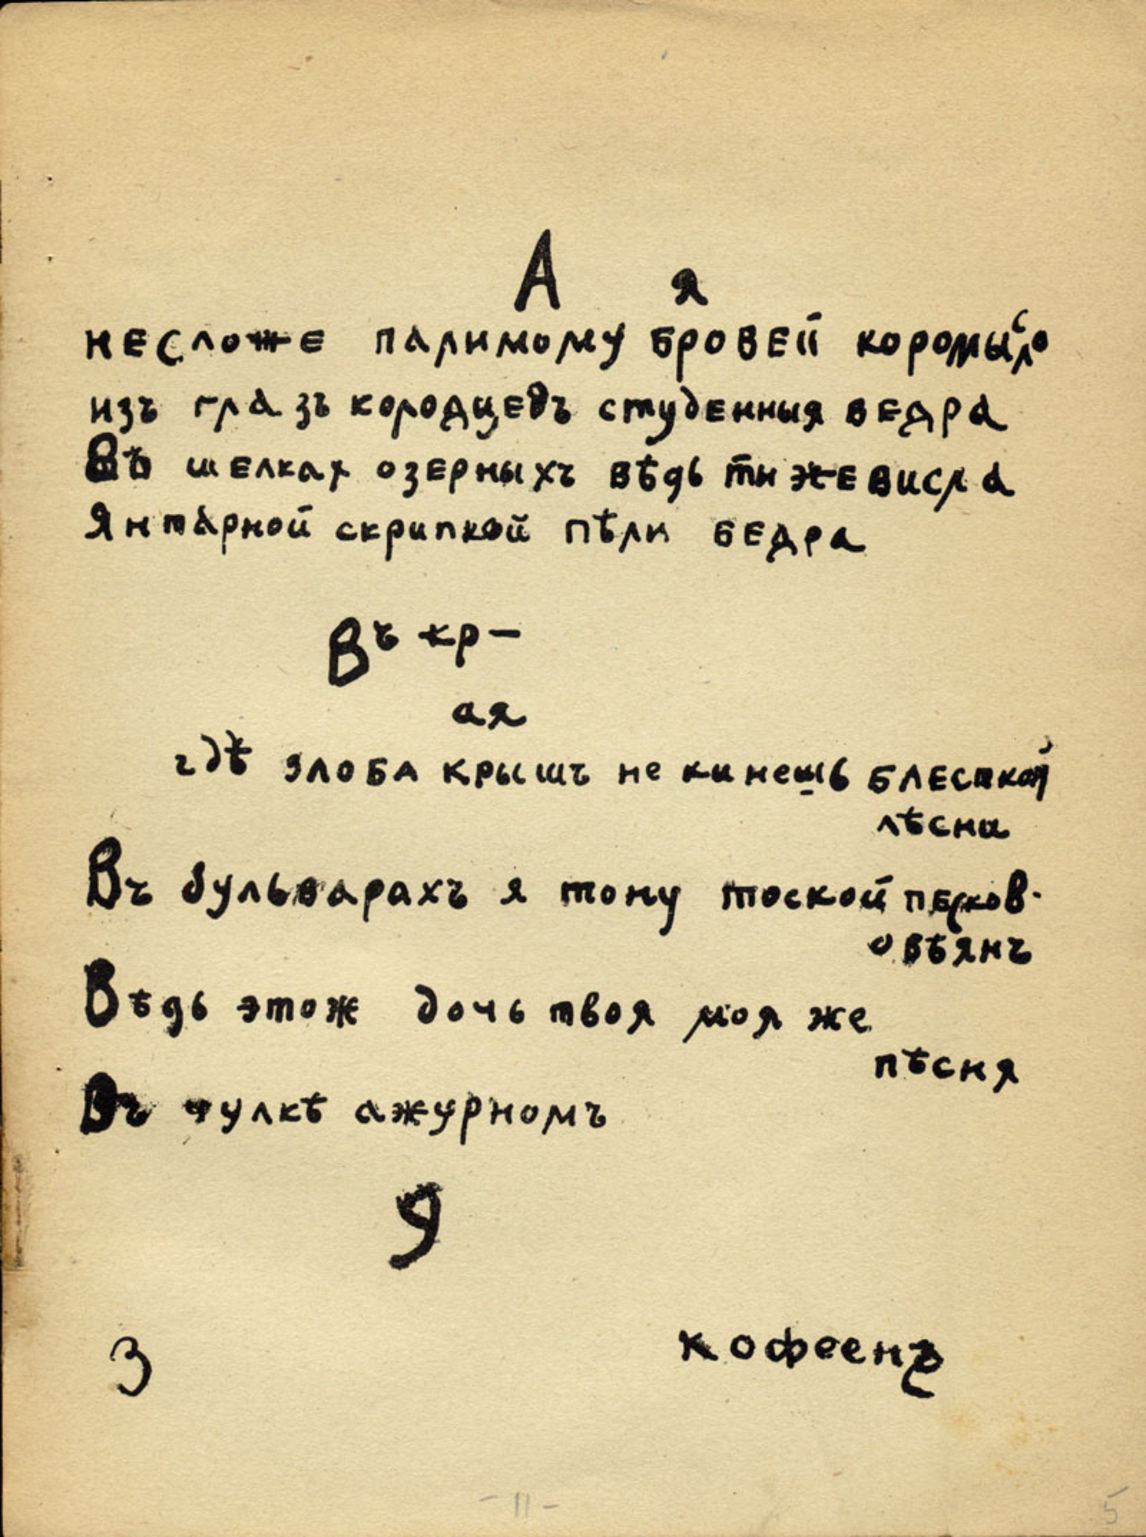 А я
несложе палимому бровей коромысло
изъ глазъ колодцевъ студенныя ведра
Въ шелках озерныхъ вѣдь ты же висла
Янтарной скрипкой пѣли бедра
Въ кр-
ая
гдѣ злоба крышъ не кинешь блесткой
лѣсни
Въ бульварахъ я тону тоской песков-
овѣянъ
Вѣдь этож дочь твоя моя же
пѣсня
Въ чулкѣ ажурномъ
У
З кофеенъ
- 11 - 5